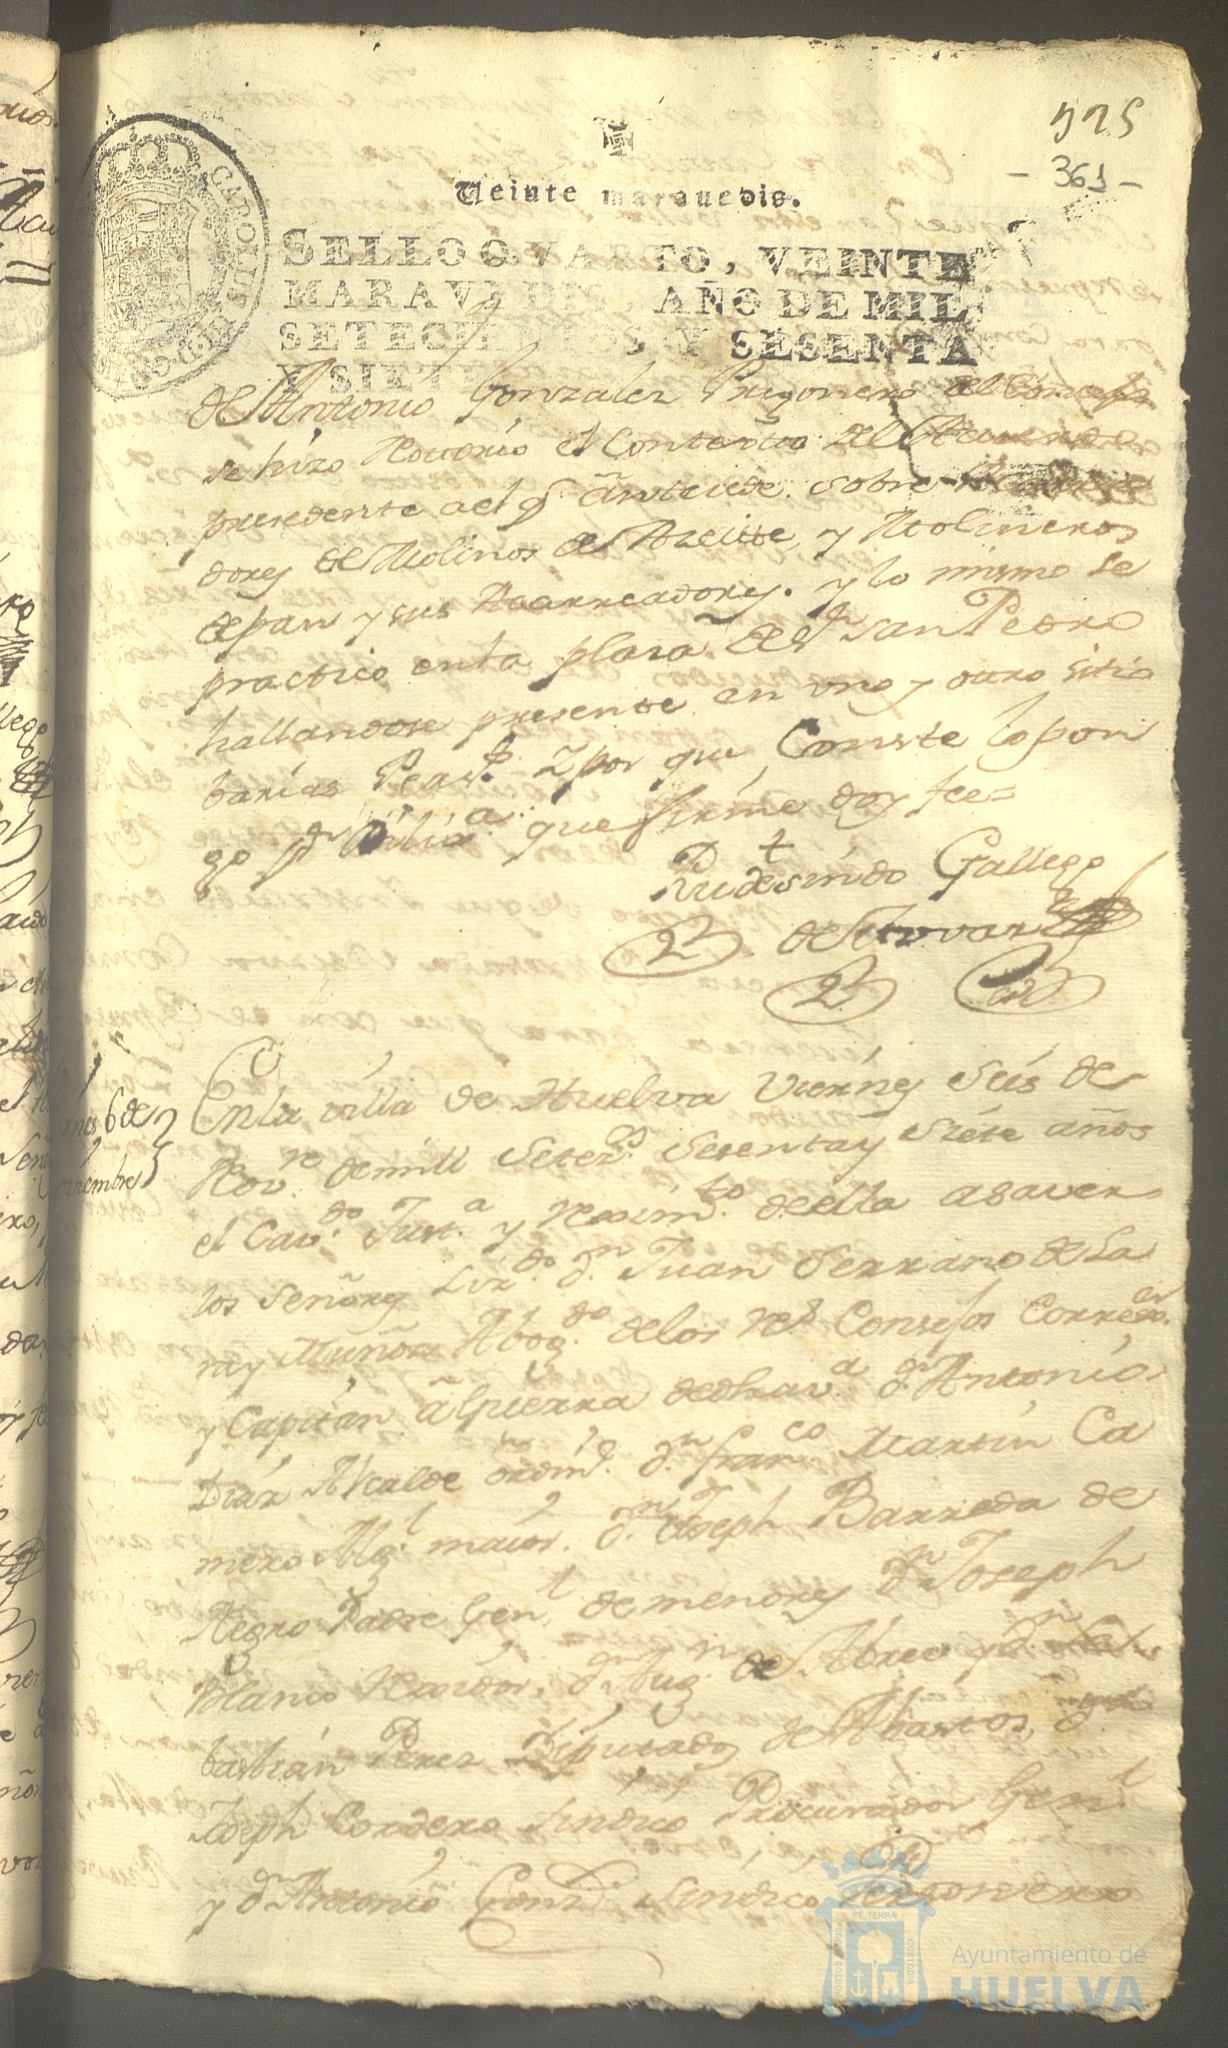 525
- 361 -
Veinte marauedis.
SELLO QVARTO, VEINTE
MARAVEDIS, AÑO DE MIL
SETECIENTOS Y SESENTA
Y SIETE
CAROLUS III D G
de Antonio Gonzalez Pregonero del Concejo
se hizo Notorio el Contexto del Acuerdo
precedente a el q̃ antecede sobre
dores de Molinos de Azeite, y Molineros
de pan y sus Acarreadores. y lo mismo se
practico en la plaza de Sn San Pedro
hallandose presente en uno y otro sitio
barias Perss. Y por que Conste lo pon
go pr Dilixa. que firme doy fee=
Rudesindo Gallego
de Tovar
Viernes 6 de
Noviembre
En la villa de Huelva Viernes Seis de
Nove. de mill Setezs. Sesenta y Siete años
el Cavdo. Justa. y Reximto. de ella a saver
los Señores Lizdo. dn Juan Serrano de La
ra y Muñoz Abogdo. de los Rs. Consejos Corregor.
y Capitan a Guerra de dha va. dn Antonio
Diaz Alcalde ordino. dn Franco Martin Ca
mero Algl. maior. dn Joseph Barreda de
Negro Padre Genl. de menores dn Joseph
Blanco Rexidor, dn Augn de Abreo y dn Se
bastian Perez Diputados de Abastos, dn
Joseph Cordero Sindico Procurador Genl
y dn Antonio Gonz. Sindico Personero
Ayuntamiento de
HUELVA